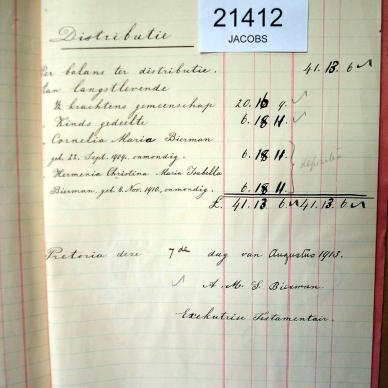 21412
JACOBS
Distributie
Per balans ter distributie. 41. 13. 6
Aan langstlevende
½ krachtens gemeenschap 20. 16 9.
Kinds gedeelte 6. 18 11.
Cornelia Maria Bierman
geb. 22. Sept. 1909, onmondig. 6. 18 11.
Hermenia Christina Maria Isabella
Bierman, geb. 6. Nov. 1910, onmondig. 6. 18 11.
£. 41. 13 6 41. 13. 6
Pretoria deze 7de dag van Augustus 1913.
A. M. S. Bierman
Exekutrise Testamentair.